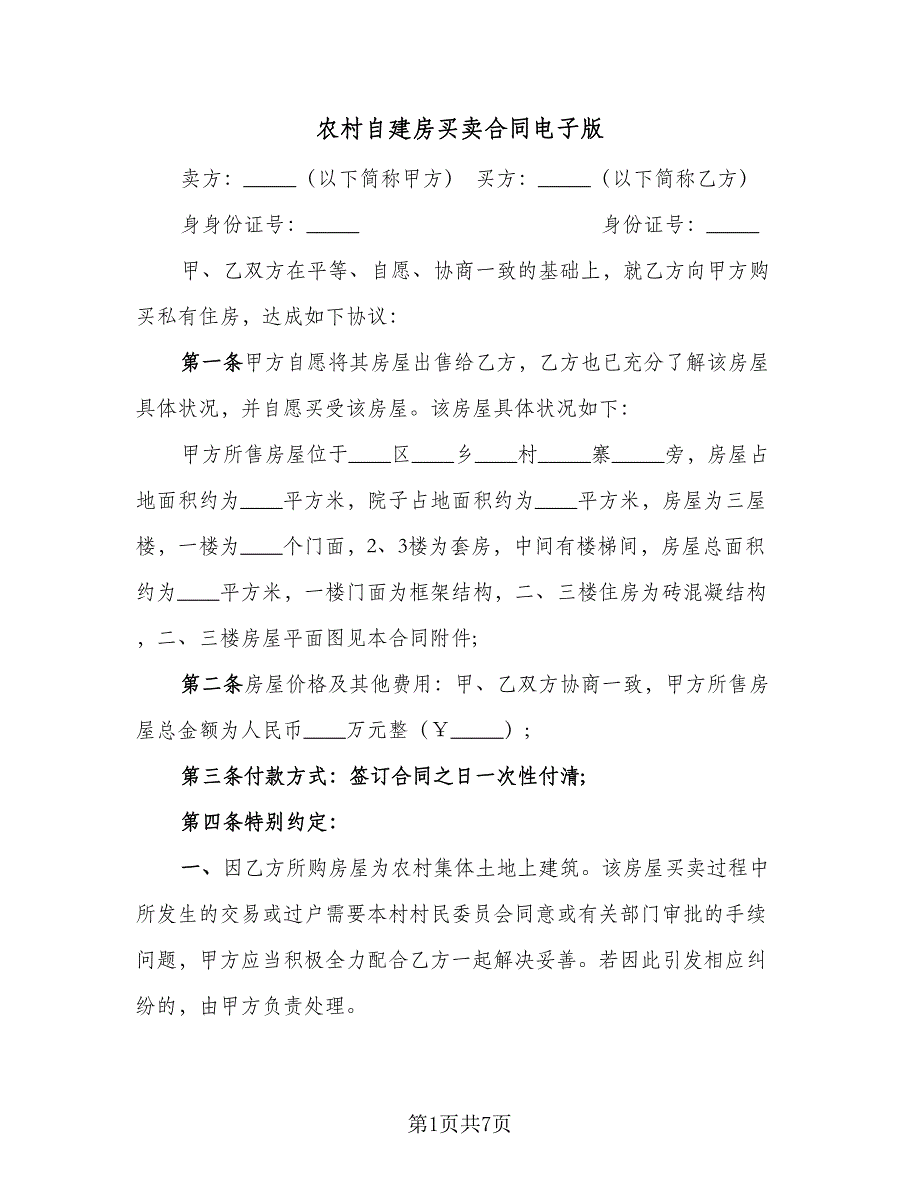 农村自建房买卖合同电子版
卖方：_____（以下简称甲方） 买方：_____（以下简称乙方）
身身份证号：_____ 身份证号：_____
甲、乙双方在平等、自愿、协商一致的基础上，就乙方向甲方购
买私有住房，达成如下协议：
第一条甲方自愿将其房屋出售给乙方，乙方也已充分了解该房屋
具体状况，并自愿买受该房屋。该房屋具体状况如下：
甲方所售房屋位于____区____乡____村_____寨_____旁，房屋占
地面积约为____平方米，院子占地面积约为____平方米，房屋为三屋
楼，一楼为____个门面，2、3楼为套房，中间有楼梯间，房屋总面积
约为____平方米，一楼门面为框架结构，二、三楼住房为砖混凝结构
，二、三楼房屋平面图见本合同附件;
第二条房屋价格及其他费用：甲、乙双方协商一致，甲方所售房
屋总金额为人民币____万元整（￥_____）;
第三条付款方式：签订合同之日一次性付清;
第四条特别约定：
一、因乙方所购房屋为农村集体土地上建筑。该房屋买卖过程中
所发生的交易或过户需要本村村民委员会同意或有关部门审批的手续
问题，甲方应当积极全力配合乙方一起解决妥善。若因此引发相应纠
纷的，由甲方负责处理。
第1页共7页